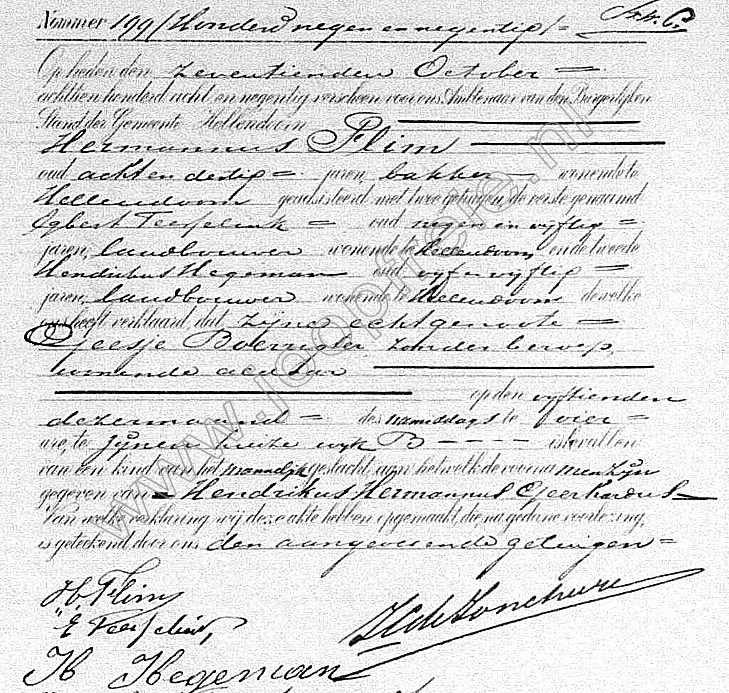 Nummer 199 (Honderd negen en negentig)
Op heden den zeventienden October
achttien honderd acht en negentig verscheen voor ons Ambtenaar van den Burgerlijken
Stand der Gemeente Hellendoorn
Hermannus Flim
oud acht en dertig jaren, bakker wonende te
Hellendoorn geadsisteerd met twee getuigen de eerste genaamd
Egbert Teesselink oud negen en vijftig
jaren, landbouwer wonende te Hellendoorn en de tweede
Hendrikus Hegeman oud vijf en vijftig
jaren, landbouwer wonende te Hellendoorn dewelke
ons heeft verklaard, dat zijne echtgenoote
Geesje Boerrigter, zonder beroep,
wonende aldaar
op den vijftienden
dezer maand des namiddags te vier
ure, te zijnen huize wijk B is bevallen
van een kind van het mannelijk geslacht, aan hetwelk de voornamen zijn
gegeven van Hendrikus Hermannus Geerhardus
Van welke verklaring wij deze akte hebben opgemaakt, die, na gedane voorlezing,
is geteekend door ons den aangevende getuigen
H. Flim
E Teesselink
H Hegeman
www.joopfreie.nl